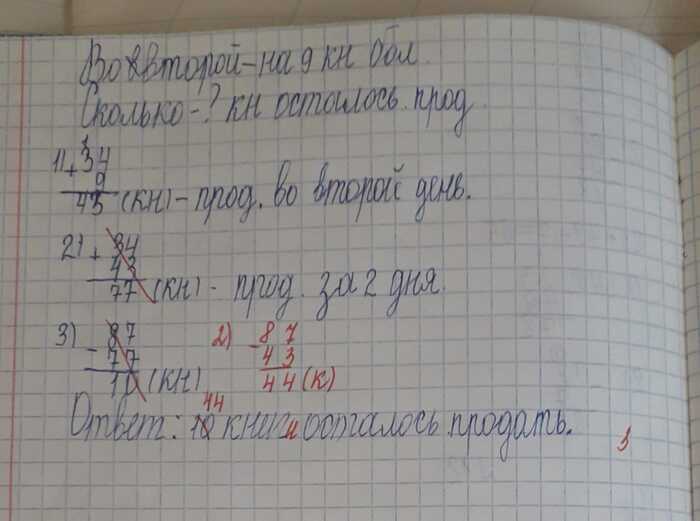 Во второй – на 9 кн бол.
Сколько – ? кн осталось прод.
1
1) + 34
9
43 (кн) – прод. во второй день.
2) + 34
43
77 (кн) – прод. за 2 дня.
3) – 87 2) – 87
77 43
10 (кн) 44 (к)
44
Ответ: 10 книги осталось продать.
3